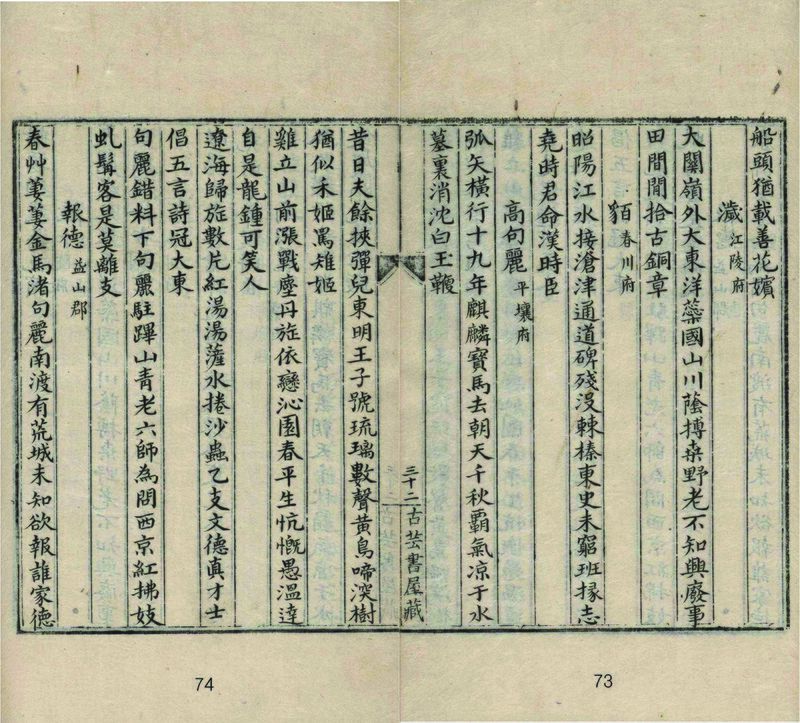 船頭猶載善花嬪
濊 江陵府
大關嶺外大東洋蘂國山川蔭搏桒野老不知興廢事
田間閒拾古銅章
貊 春川府
昭陽江水接滄津通道碑殘沒棘榛東史未窮班掾志
堯時君命漢時臣
高句麗 平壤府
弧矢橫行十九年麒麟寶馬去朝天千秋霸氣凉于水
墓裏消沈白玉鞭
三十二 古芸書屋藏
昔日夫餘挾彈兒東明王子號琉璃數聲黃鳥啼深樹
猶似禾姬罵雉姬
雞立山前漲戰塵丹旌依戀沁園春平生忼慨愚溫達
自是龍鍾可笑人
遼海歸旌數片紅湯湯薩水捲沙蟲乙支文德眞才士
倡五言詩冠大東
句麗錯料下句麗駐蹕山青老六師為問西京紅拂妓
虬髯客是莫離支
報德 益山郡
春艸萋萋金馬渚句麗南渡有荒城未知欲報誰家德
73
74